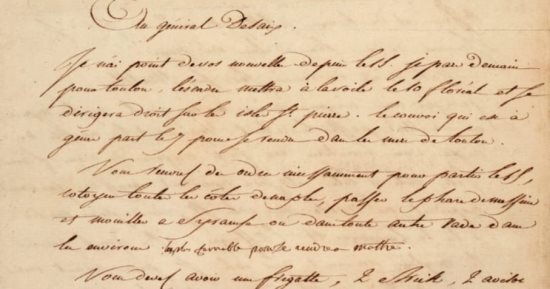 Au général Desaix.
Je n'ai point de vos nouvelle depuis le 15. je pars demain
pour toulon, l'escadre mettra à la voile le 10 floréal et se
dirigera droit sur les isle St. pierre. le convoi qui est à
gène part le 7 pour se rendre dans les mers de toulon.
Vous recevrez des ordres incessamment pour partir le 15,
cotoyer toute la côte de naple, passer le phare de messine
et mouiller a Syracuse ou dans toute autre rade dans
les environs la plus favorable pour se rendre a malthe.
Vous devez avoir une frégatte, 2 Brick, 2 avisos